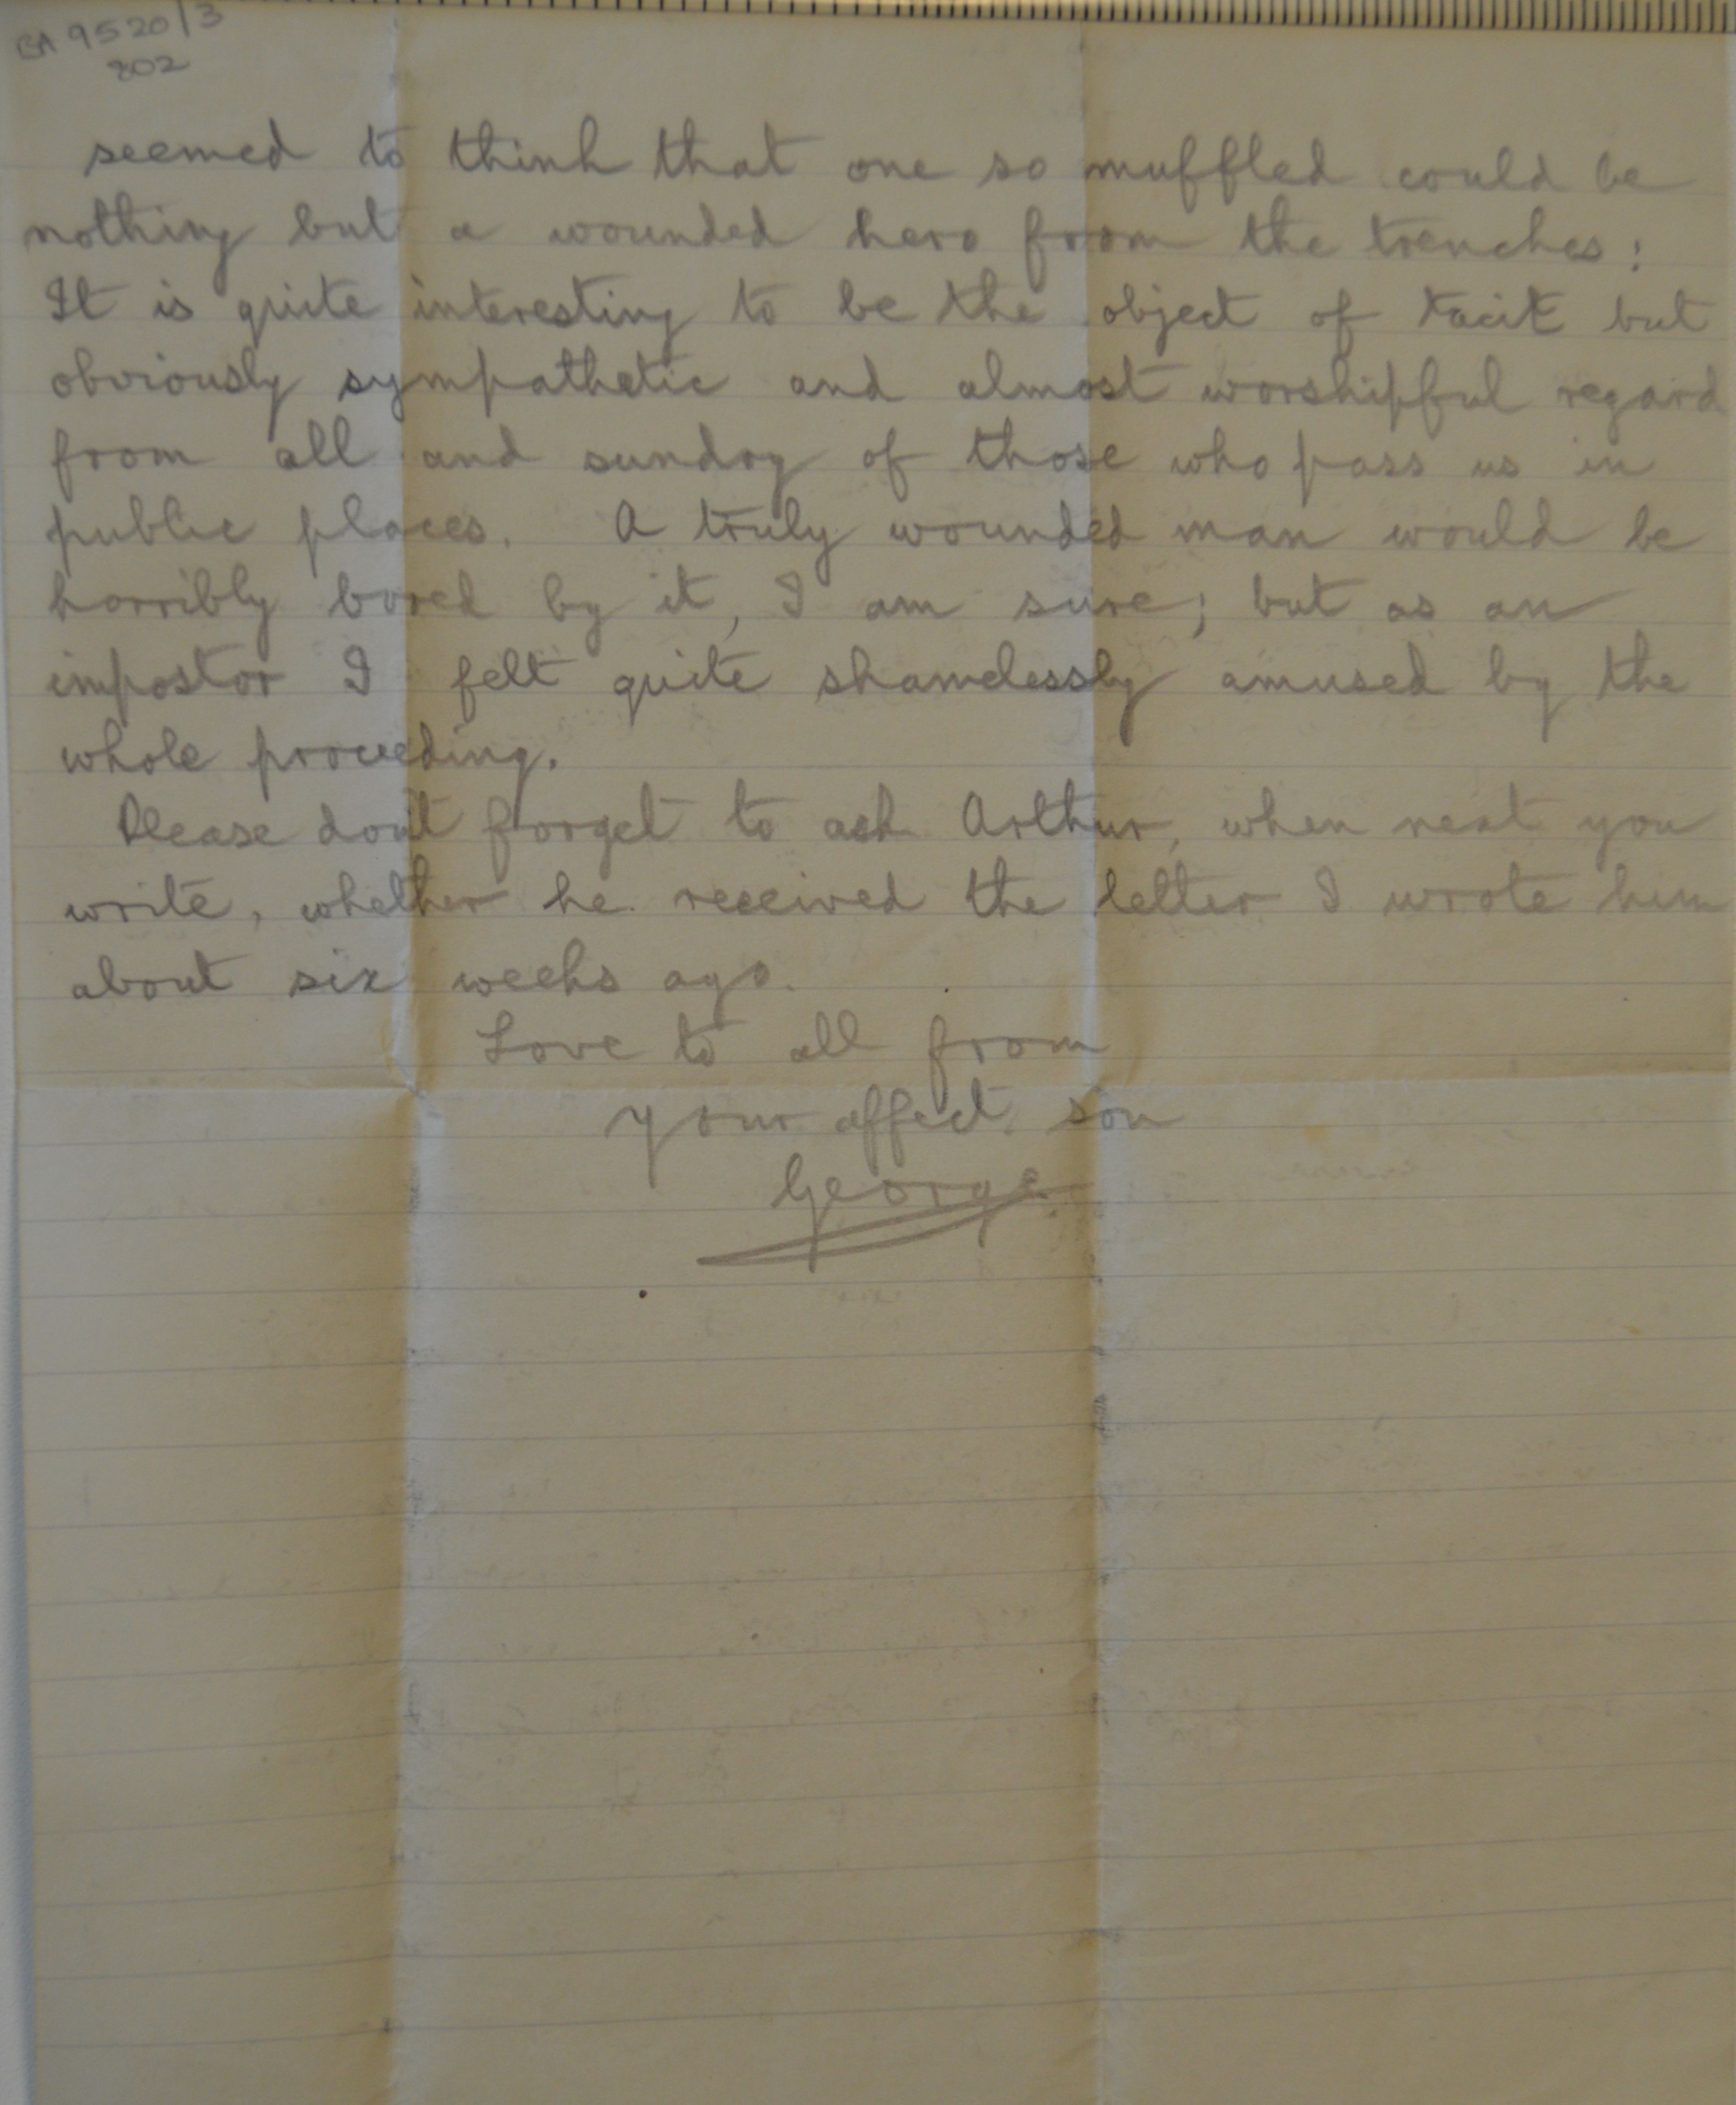 BA 9520/3
802
seemed to think that one so muffled could be
nothing but a wounded hero from the trenches:
It is quite interesting to be the object of tacit but
obviously sympathetic and almost worshipful regard
from all and sundry of those who pass us in
public places. A truly wounded man would be
horribly bored by it, I am sure; but as an
impostor I felt quite shamelessly amused by the
whole proceeding.
Please don't forget to ask Arthur, when next you
write, whether he received the letter I wrote him
about six weeks ago.
Love to all from
your affect. son
George.